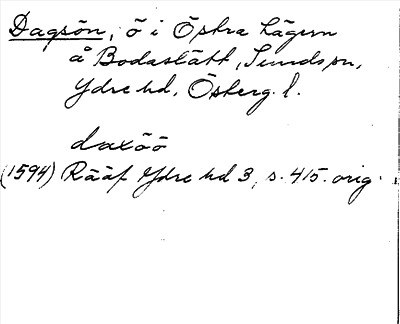 Dagsön, ö i Östra Lägern
å Bodastätt, Sunds sn,
Ydre hd, Österg. l.
daxöö
(1594) Rääf Ydre hd 3, s. 415. orig.